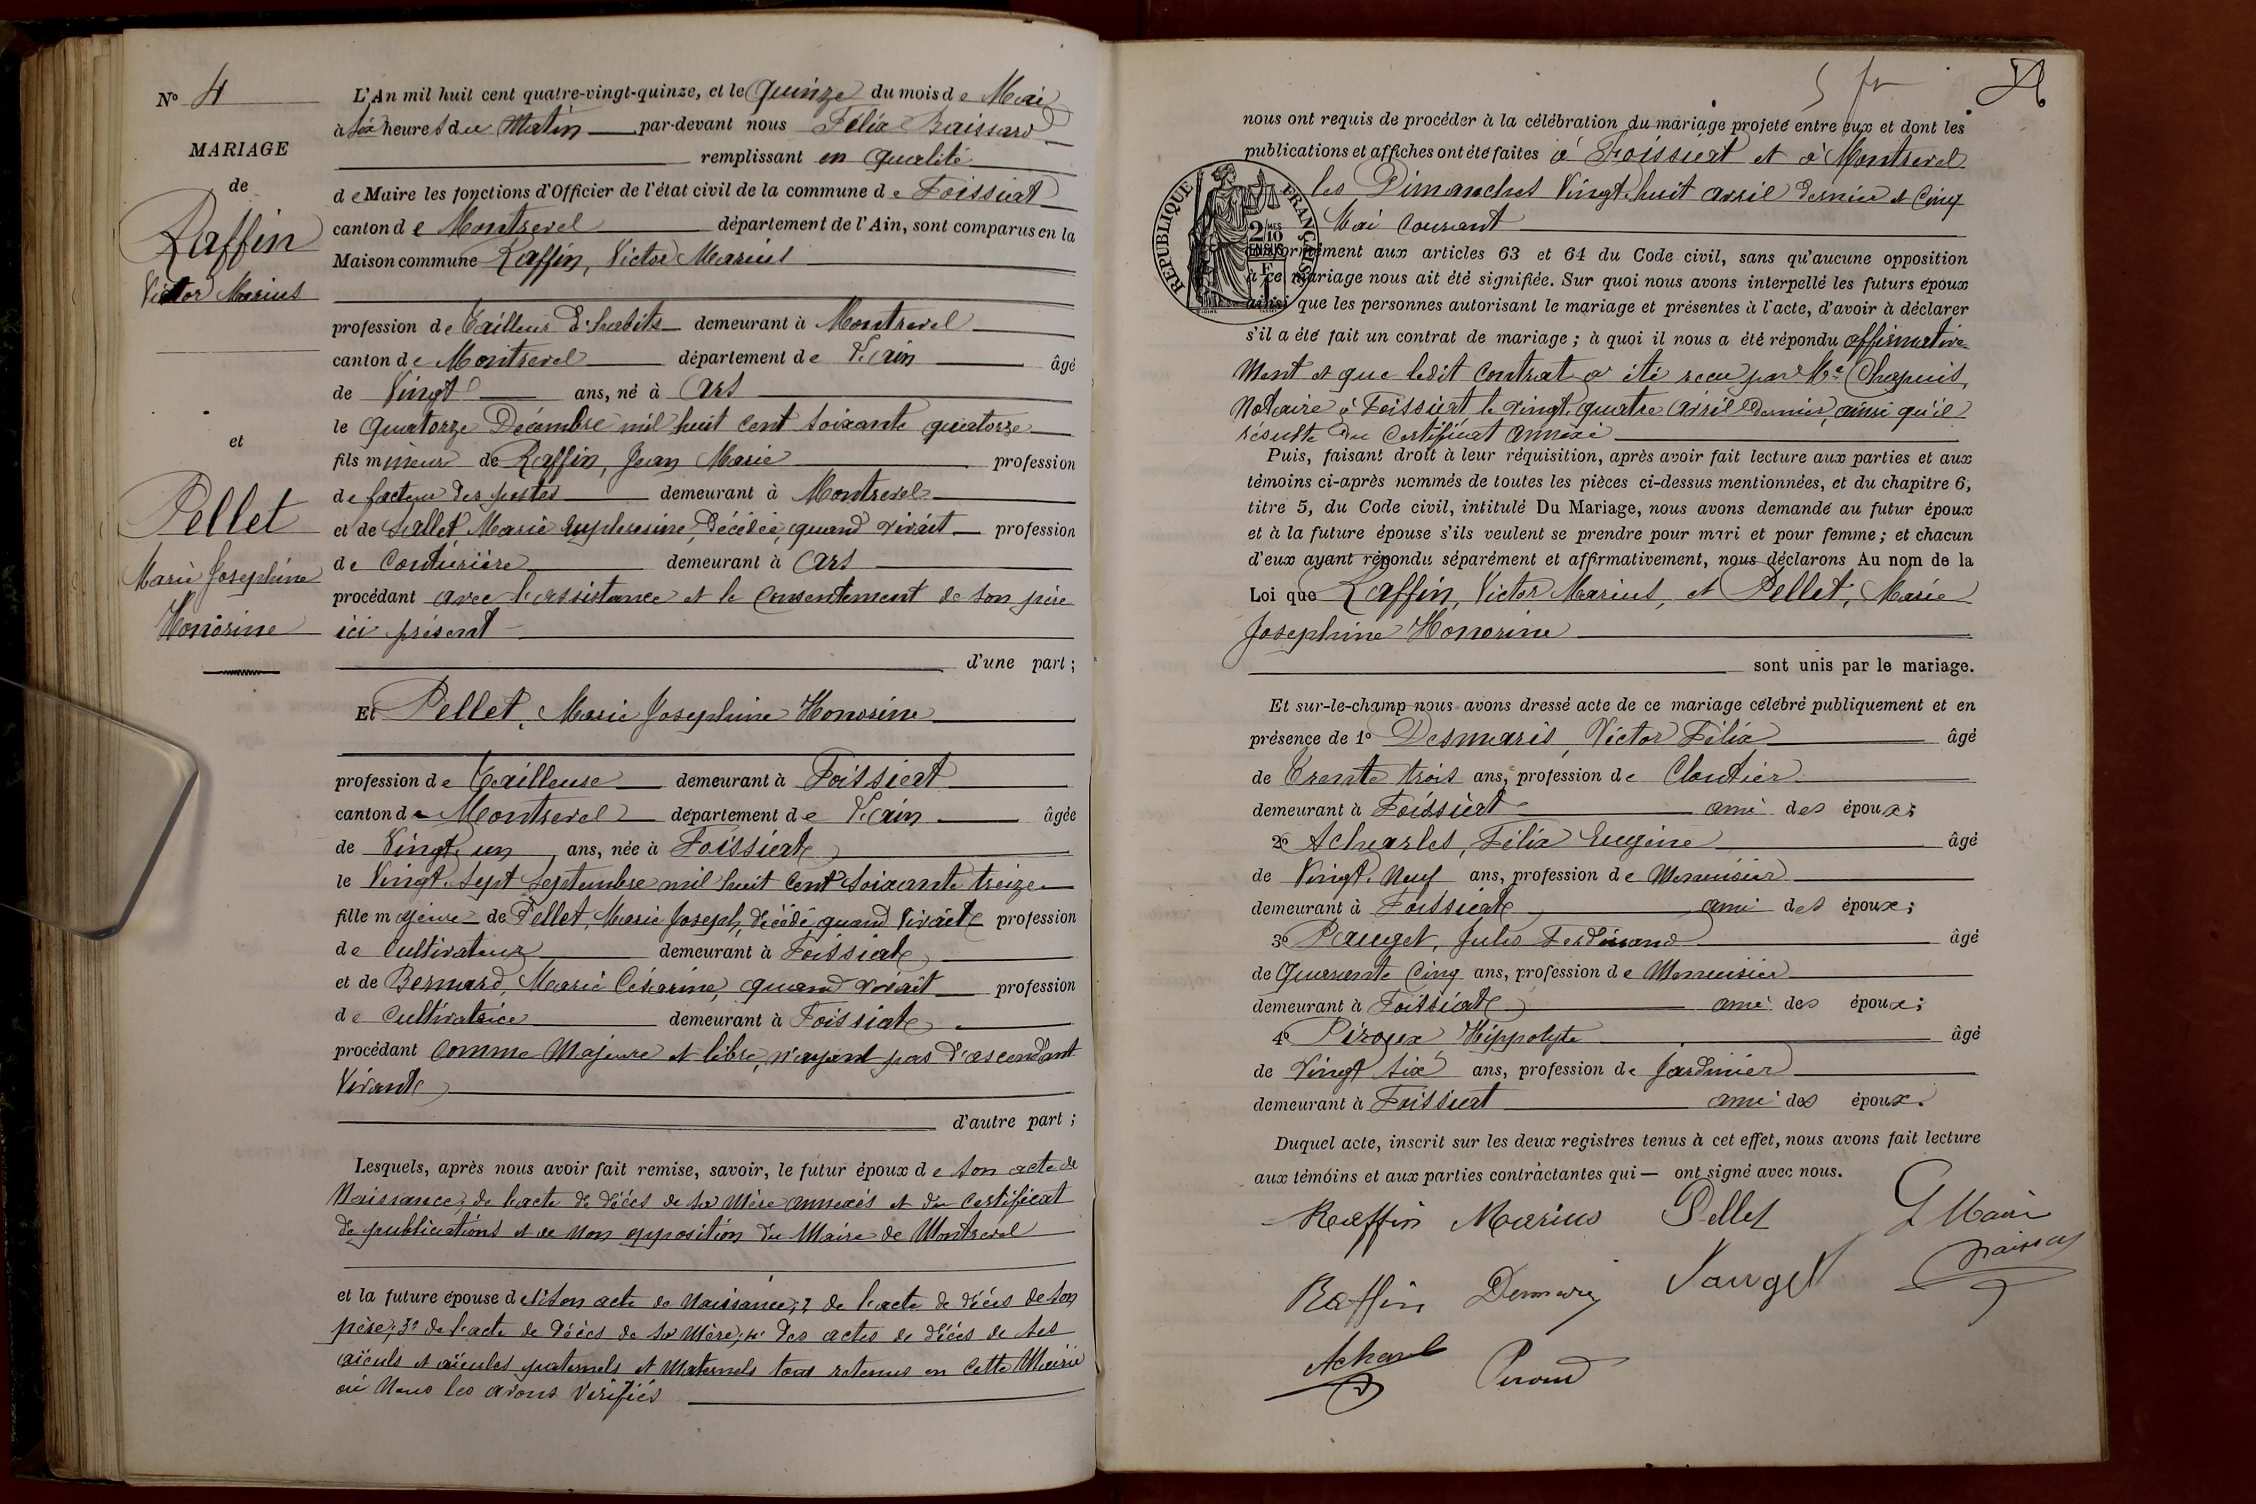 N° 4
MARIAGE
de
Raffin
Victor Marius
et
Pellet
Marie Josephine
Honorine
L'An mil huit cent quatre-vingt-quinze, et le Quinze du mois de Mai
à six heures du Matin par-devant nous Félix Raissard
remplissant en qualité
de Maire les fonctions d'Officier de l'état civil de la commune de Foissiat
canton de Montrevel département de l'Ain, sont comparus en la
Maison commune Raffin, Victor Marius
profession de Tailleur d'habits demeurant à Montrevel
canton de Montrevel département de l'Ain âgé
de Vingt ans, né à Ars
le Quatorze Décembre mil huit cent soixante quatorze
fils mineur de Raffin, Jean Marie profession
de facteur des postes demeurant à Montrevel
et de Sallet, Marie Euphrosine, décédée, quand vivait profession
de Couturière demeurant à Ars
procédant avec l'assistance et le consentement de son père
ici présent
d'une part;
Et Pellet, Marie Josephine Honorine
profession de Tailleuse demeurant à Foissiat
canton de Montrevel département de l'Ain âgée
de Vingt un ans, née à Foissiat
le Vingt-Sept Septembre mil huit cent soixante treize
fille majeure de Pellet, Marie Joseph, décédé, quand vivait profession
de Cultivateur demeurant à Foissiat
et de Bernard, Marie Césarine, quand vivait profession
de Cultivatrice demeurant à Foissiat
procédant comme Majeure et libre, n'ayant pas d'ascendant
Vivant
d'autre part;
Lesquels, après nous avoir fait remise, savoir, le futur époux de son acte de
Naissance, de l'acte de décès de sa Mère annexés et du certificat
de publications et de non opposition du Maire de Montrevel
et la future épouse de 1° son acte de Naissance; 2° de l'acte de décès de son
père; 3° de l'acte de décès de sa Mère; 4° des actes de décès de ses
aïeuls et aïeules paternels et maternels tous retenus en cette Mairie
où Nous les avons vérifiés
5 fr
nous ont requis de procéder à la célébration du mariage projeté entre eux et dont les
publications et affiches ont été faites à Foissiat et à Montrevel
les Dimanches Vingt-huit avril dernier et Cinq
Mai courant
conformément aux articles 63 et 64 du Code civil, sans qu'aucune opposition
à ce mariage nous ait été signifiée. Sur quoi nous avons interpellé les futurs époux
ainsi que les personnes autorisant le mariage et présentes à l'acte, d'avoir à déclarer
s'il a été fait un contrat de mariage; à quoi il nous a été répondu affirmative-
Ment et que ledit contrat a été reçu par Me Chapuis,
Notaire à Foissiat le vingt-quatre avril dernier, ainsi qu'il
résulte du certificat annexé
Puis, faisant droit à leur réquisition, après avoir fait lecture aux parties et aux
témoins ci-après nommés de toutes les pièces ci-dessus mentionnées, et du chapitre 6,
titre 5, du Code civil, intitulé Du Mariage, nous avons demandé au futur époux
et à la future épouse s'ils veulent se prendre pour mari et pour femme; et chacun
d'eux ayant répondu séparément et affirmativement, nous déclarons Au nom de la
Loi que Raffin, Victor Marius, et Pellet, Marie
Josephine Honorine
sont unis par le mariage.
Et sur-le-champ nous avons dressé acte de ce mariage célébré publiquement et en
présence de 1° Desmaris, Victor Félix âgé
de Trente trois ans, profession de Cloutier
demeurant à Foissiat ami des époux;
2° Acharles, Félix Eugène âgé
de Vingt-Neuf ans, profession de Menuisier
demeurant à Foissiat ami des époux;
3° Pauget, Jules Ferdinand âgé
de Quarante Cinq ans, profession de Menuisier
demeurant à Foissiat ami des époux;
4° Piroux Hippolyte âgé
de Vingt six ans, profession de Jardinier
demeurant à Foissiat ami des époux.
Duquel acte, inscrit sur les deux registres tenus à cet effet, nous avons fait lecture
aux témoins et aux parties contractantes qui — ont signé avec nous.
Raffin Marius Pellet Le Maire
Raffin Desmaris Pauget Raissard
Acharles Piroud
RÉPUBLIQUE FRANÇAISE
2/10 EN SUS